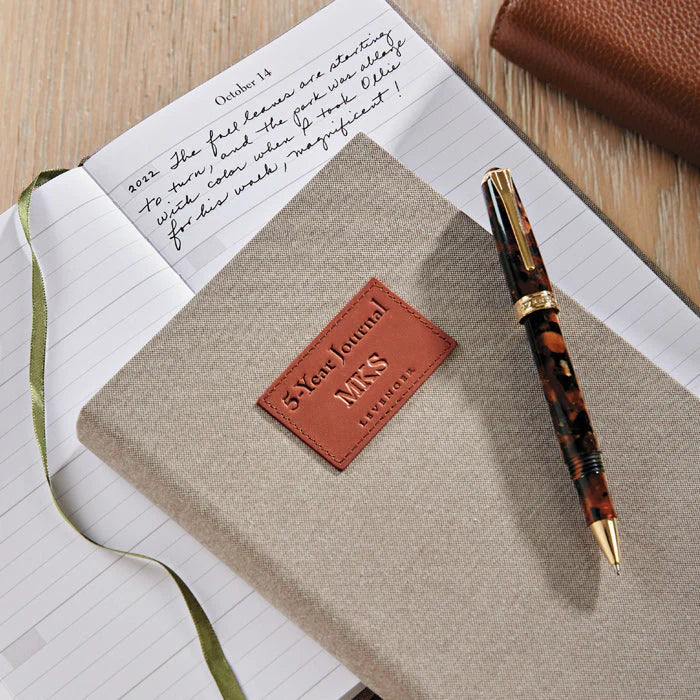 October 14
2022 The fall leaves are starting
to turn, and the park was ablaze
with color when I took Ollie
for his walk, magnificent!
5-Year Journal
MKS
LEVENGER